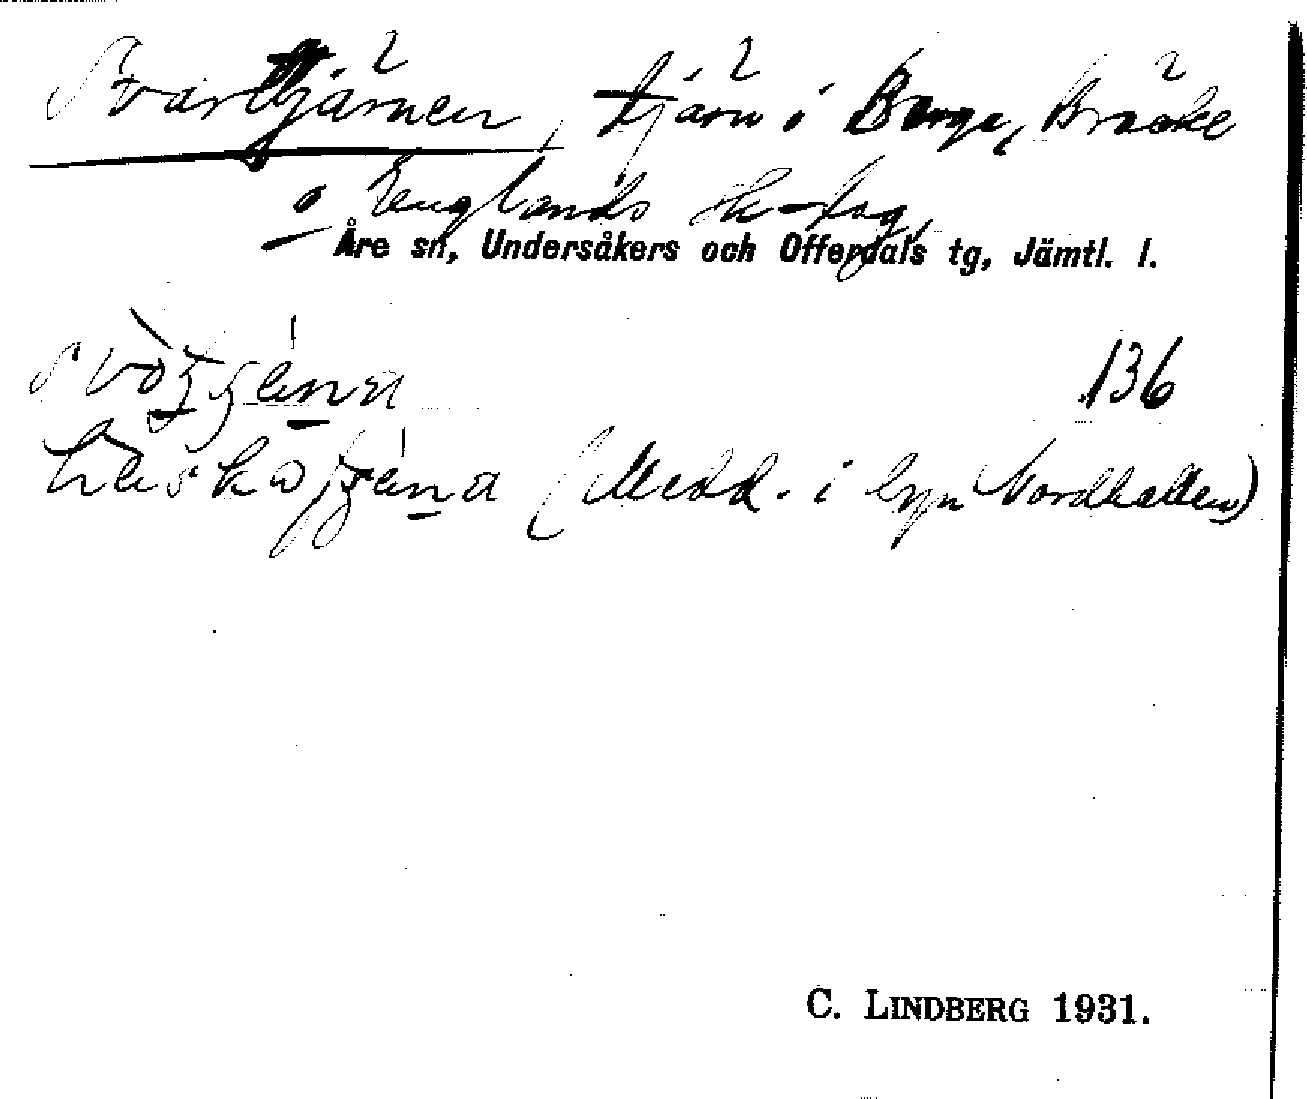 Svarttjärnen, tjärn i Berge, Bräcke
o Englands sk-lag,
Åre sn, Undersåkers och Offerdals tg, Jämtl. l.
136
(Medd. i byn Nordhallen)
C. LINDBERG 1931.